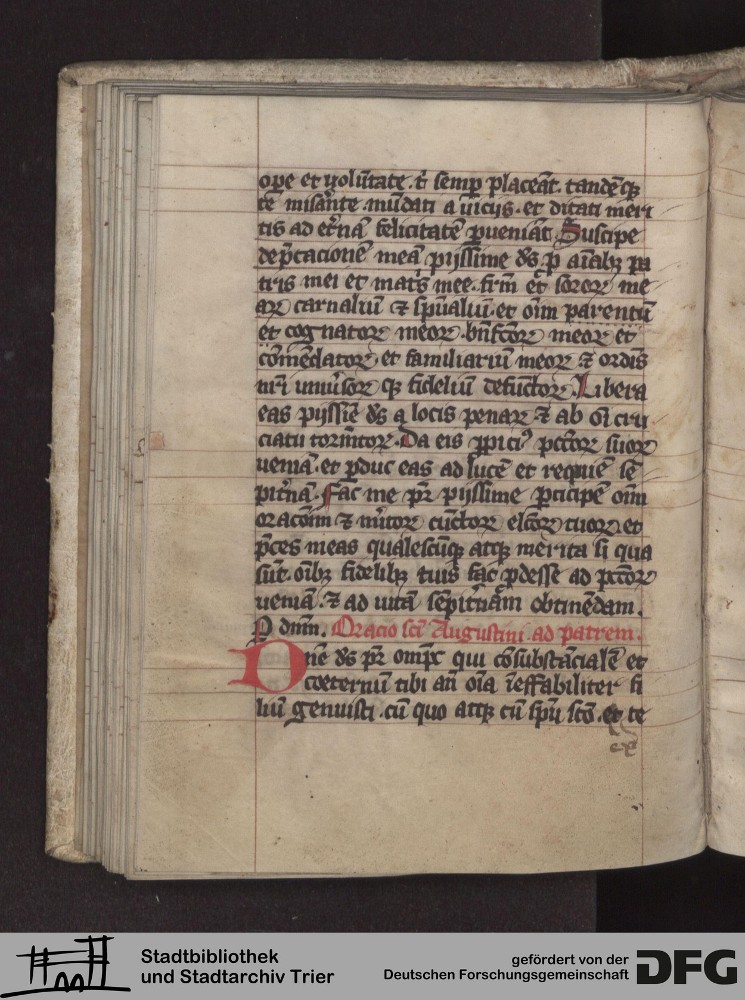 ope et volūtate. t̄ semp placeāt. tandēq
te misāte mūdati a viciis. et ditati meri
tis ad et'nā felicitatē pueniāt Suscipe
dep̄cationē meā pijssime d̄s p̄ aīabꝫ pa
tris mei et mat's mee. frm̄ et sororꝝ me
arꝝ carnaliū ⁊ sp̄ualiū. et oīm parentū
et cognatorꝝ meorꝝ. bn̄fc̄orꝝ meorꝝ et
cōmēdatorꝝ et familiariū meorꝝ ⁊ ordīs
nr̄i vniu'sorꝝ qꝫ fideliū defūctorꝝ. Libera
eas pijssīe d̄s a locis penarꝝ ⁊ ab oī cru
ciatu torm̄torꝝ. Da eis ppiciꝰ pcc̄torꝝ suorꝝ
veniā. et pduc eas ad lucē et requiē sē
pit'nā. Fac me pr̄ pijssime pticipē oīm
oracōnm ⁊ m'itorꝝ cūctorꝝ elc̄orꝝ tuorꝝ et
p̄ces meas qualescūqꝫ atqꝫ merita si qua
sūt. oībꝫ fidelibꝫ tuis fac pdesse ad pcc̄orꝝ
veniā. ⁊ ad vitā sēpit'nam obtinēdam.
P dnm̄. Oracio sc̄i Augustini. ad patrem.
Dn̄e d̄s pr̄ omp̄c qui cōsubstācialē et
coeternū tibi an̄ oīa īeffabiliter fi
liū genuisti. cū quo atqꝫ cū sp̄u sc̄o. et te
Stadtbibliothek
und Stadtarchiv Trier
gefördert von der
Deutschen Forschungsgemeinschaft
DFG